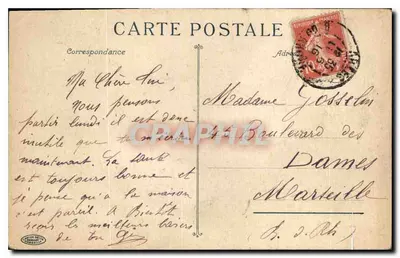 CARTE POSTALE
Correspondance
Ma Chère
nous pensons
partir lundi il est donc
inutile que
maintenant. La santé
est toujours bonne et
je pense qu'à la maison
c'est pareil. A Bientôt
les meilleurs baisers
de ton
Madame Gosselin
44 Boulevard des
Dames
Marseille
B. d. Rh